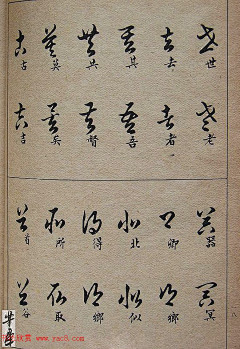 世 去 其 共 莫 古
老 者 吾 督 矣 吉
器 卿 北 得 所 首
冥 鄉 似 鄉 取 谷
八
www.yac8.com